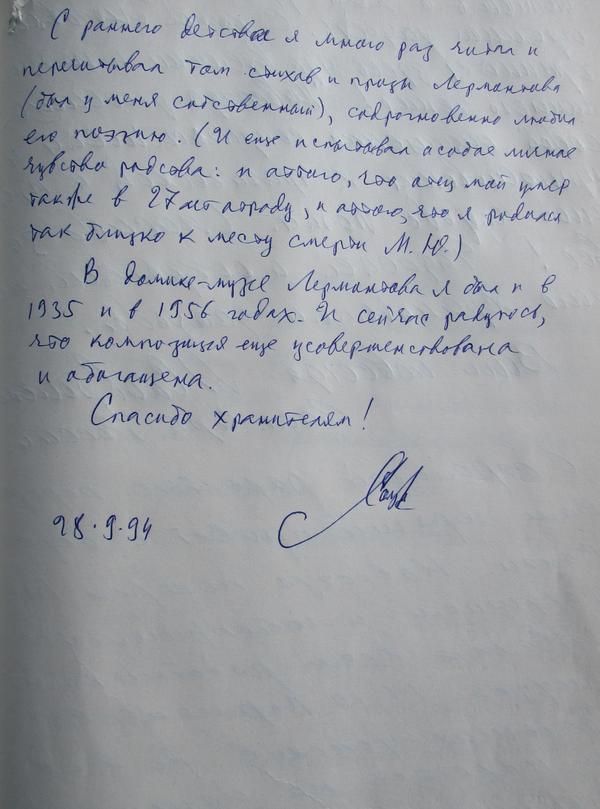 С раннего детства я много раз читал и
перечитывал том стихов и прозы Лермонтова
(был у меня собственный), содрогновенно любил
его поэзию. (И еще испытывал особое личное
чувство родства: и оттого, что отец мой умер
также в 27 лет отроду, и оттого, что я родился
так близко к месту смерти М. Ю.)
В домике-музее Лермонтова я был и в
1935 и в 1956 годах. И сейчас радуюсь,
что композиция еще усовершенствована
и обогащена.
Спасибо хранителям!
28.9.94